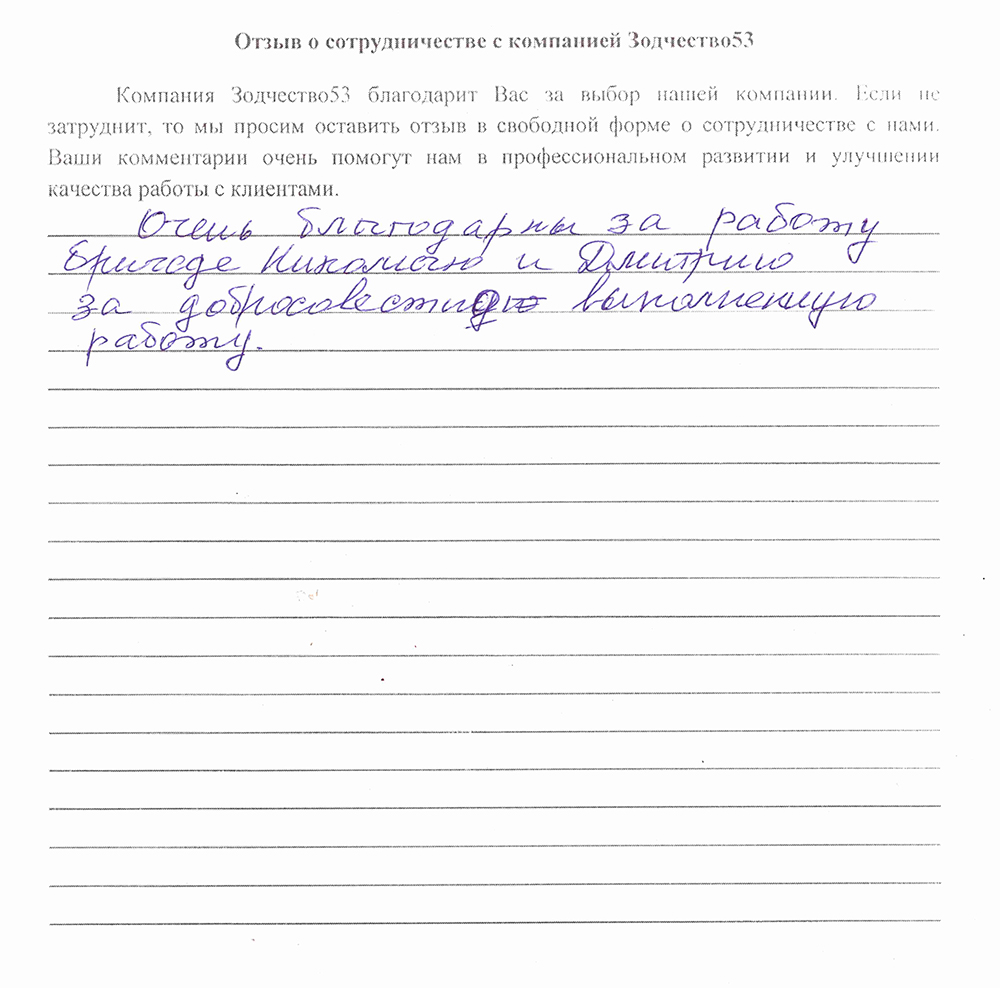 Отзыв о сотрудничестве с компанией Зодчество53
Компания Зодчество53 благодарит Вас за выбор нашей компании. Если не
затруднит, то мы просим оставить отзыв в свободной форме о сотрудничестве с нами.
Ваши комментарии очень помогут нам в профессиональном развитии и улучшении
качества работы с клиентами.
Очень благодарны за работу
бригаде Николаю и Дмитрию
за добросовестно выполненную
работу.